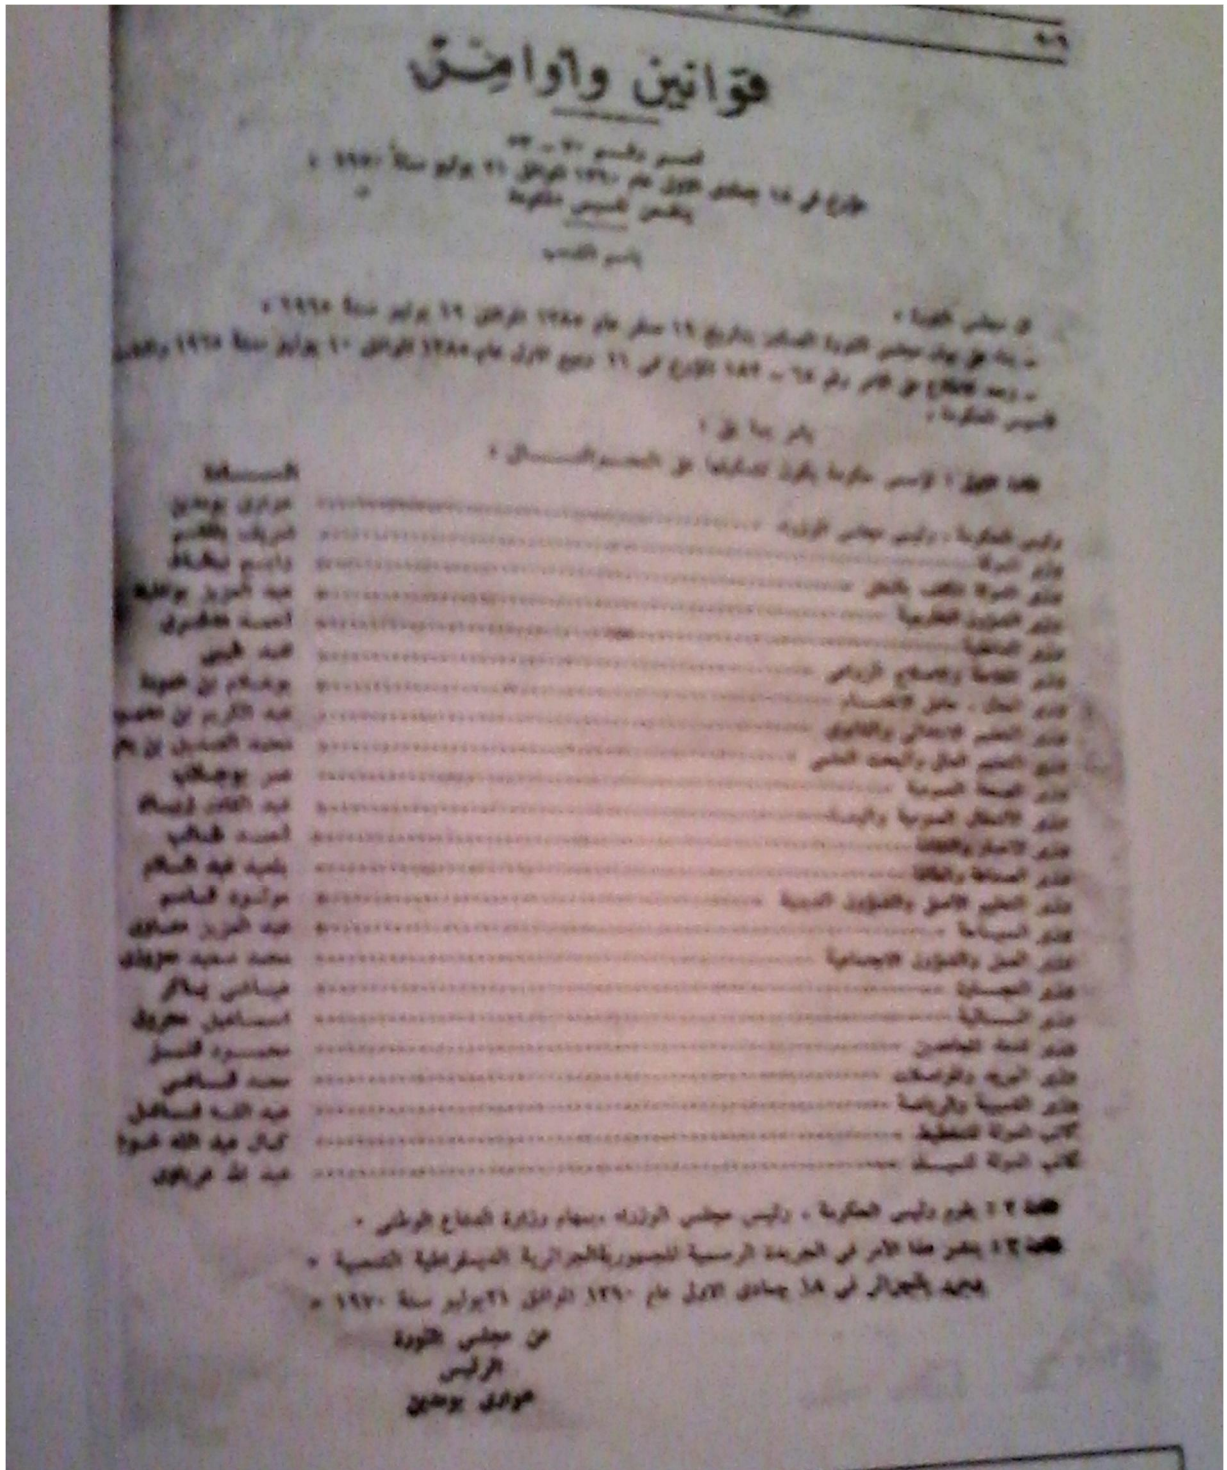 ٩٠٦
قوانين وأوامر
أمر رقم ٧٠ - ٥٣
مؤرخ في ١٨ جمادى الاولى عام ١٣٩٠ الموافق ٢١ يوليو سنة ١٩٧٠ ،
يتضمن تأسيس الحكومة
باسم الشعب
ان مجلس الثورة ،
- بناء على بيان مجلس الثورة الصادر بتاريخ ١٩ صفر عام ١٣٨٥ الموافق ١٩ يونيو سنة ١٩٦٥ ،
- وبعد الاطلاع على الامر رقم ٦٥ - ١٨٢ المؤرخ في ١١ ربيع الاول عام ١٣٨٥ الموافق ١٠ يوليو سنة ١٩٦٥
تأسيس الحكومة ،
يأمر بما يلي :
المادة الاولى : تؤسس حكومة يكون تشكيلها على النحو التالي :
السادة
رئيس الحكومة ، رئيس مجلس الوزراء هواري بومدين
وزير الدولة شريف بلقاسم
وزير الدولة المكلف بالنقل رابح بيطاط
وزير الشؤون الخارجية عبد العزيز بوتفليقة
وزير الداخلية أحمد مدغري
وزير الفلاحة والاصلاح الزراعي محمد طيبي
وزير العدل ، حامل الاختام بوعلام بن حمودة
وزير التعليم الابتدائي والثانوي عبد الكريم بن محمود
وزير التعليم العالي والبحث العلمي محمد الصديق بن يحي
وزير الصحة العمومية عمر بوجلاب
وزير الأشغال العمومية والبناء عبد القادر زيبك
وزير الاخبار والثقافة أحمد طالب
وزير الصناعة والطاقة بلعيد عبد السلام
وزير التعليم الاصلي والشؤون الدينية مولود قاسم
وزير السياحة عبد العزيز معاوي
وزير العمل والشؤون الاجتماعية محمد سعيد معزوزي
وزير التجارة عياشي ياكر
وزير المالية اسماعيل محروق
وزير قدماء المجاهدين محمود قنز
وزير البريد والمواصلات محمد قاضي
وزير الشبيبة والرياضة عبد الله فاضل
كاتب الدولة للتخطيط كمال عبد الله خوجة
كاتب الدولة للمياه عبد الله عرباوي
المادة ٢ : يقوم رئيس الحكومة ، رئيس مجلس الوزراء ، بمهام وزارة الدفاع الوطني .
المادة ٣ : ينشر هذا الأمر في الجريدة الرسمية للجمهورية الجزائرية الديمقراطية الشعبية .
وحرر بالجزائر في ١٨ جمادى الاولى عام ١٣٩٠ الموافق ٢١ يوليو سنة ١٩٧٠ .
عن مجلس الثورة
الرئيس
هواري بومدين